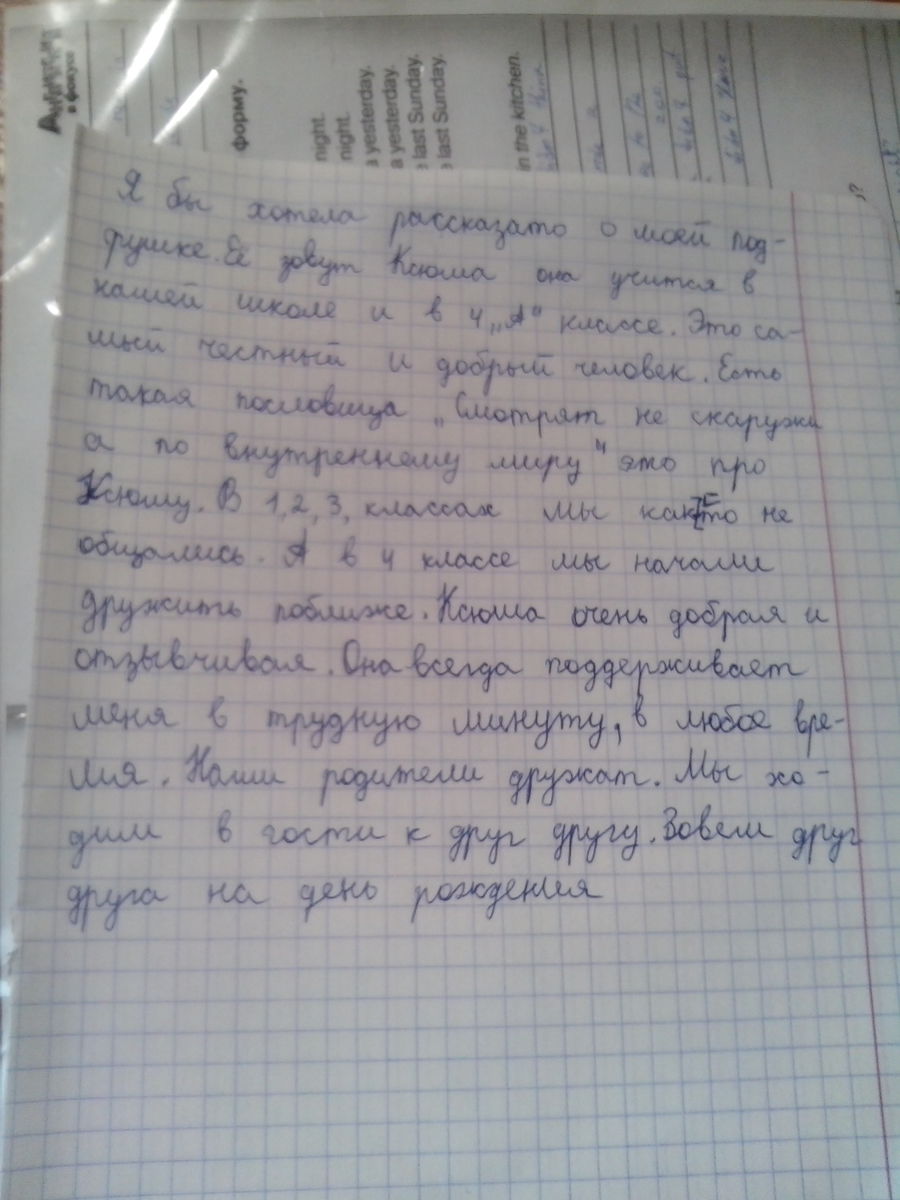 Английский
в фокусе
форму.
night.
night.
a yesterday.
a yesterday.
e last Sunday.
e last Sunday.
in the kitchen.
Я бы хотела рассказато о моей под-
фушке. Её зовут Ксюма она учится в
нашей школе и в 4 „А“ классе. Это са-
мый честный и добрый человек. Есть
такая пословица „Смотрят не снаружи
а по внутреннему миру“ это про
Ксюму. В 1, 2, 3, классах мы както не
общались. А в 4 классе мы начали
дружить поближе. Ксюша очень добрая и
отзывчивая. Она всегда поддерживает
меня в трудную минуту, в любое вре-
мя. Наши родители дружат. Мы хо-
дим в гости к друг другу. Зовем друг
друга на день рождения